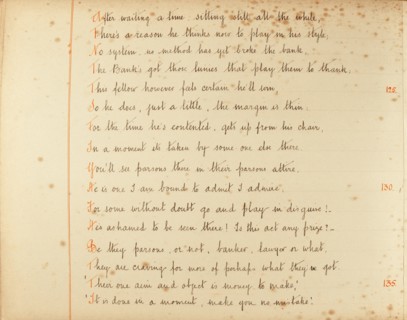 After waiting a time sitting still all the while,
There's a reason he thinks now to play in his style,
No system, no method has yet broke the bank,
The Bank's got those lunies that play them to thank.
This fellow however feels certain he'll win, 128.
So he does, just a little, the margin is thin.
For the time he's contented, gets up from his chair,
In a moment its taken by some one else there.
You'll see parsons there in their parsons attire,
He is one I am bound to admit I admire. 130.
For some without doubt go and play in disguise!-
He's ashamed to be seen there! Is this act any prize!-
Be they parsons, or not, banker, lawyer or what,
They are craving for more of perhaps what they've got
'Their one aim and object is money to make,' 135.
'It is done in a moment, make you no mistake.'